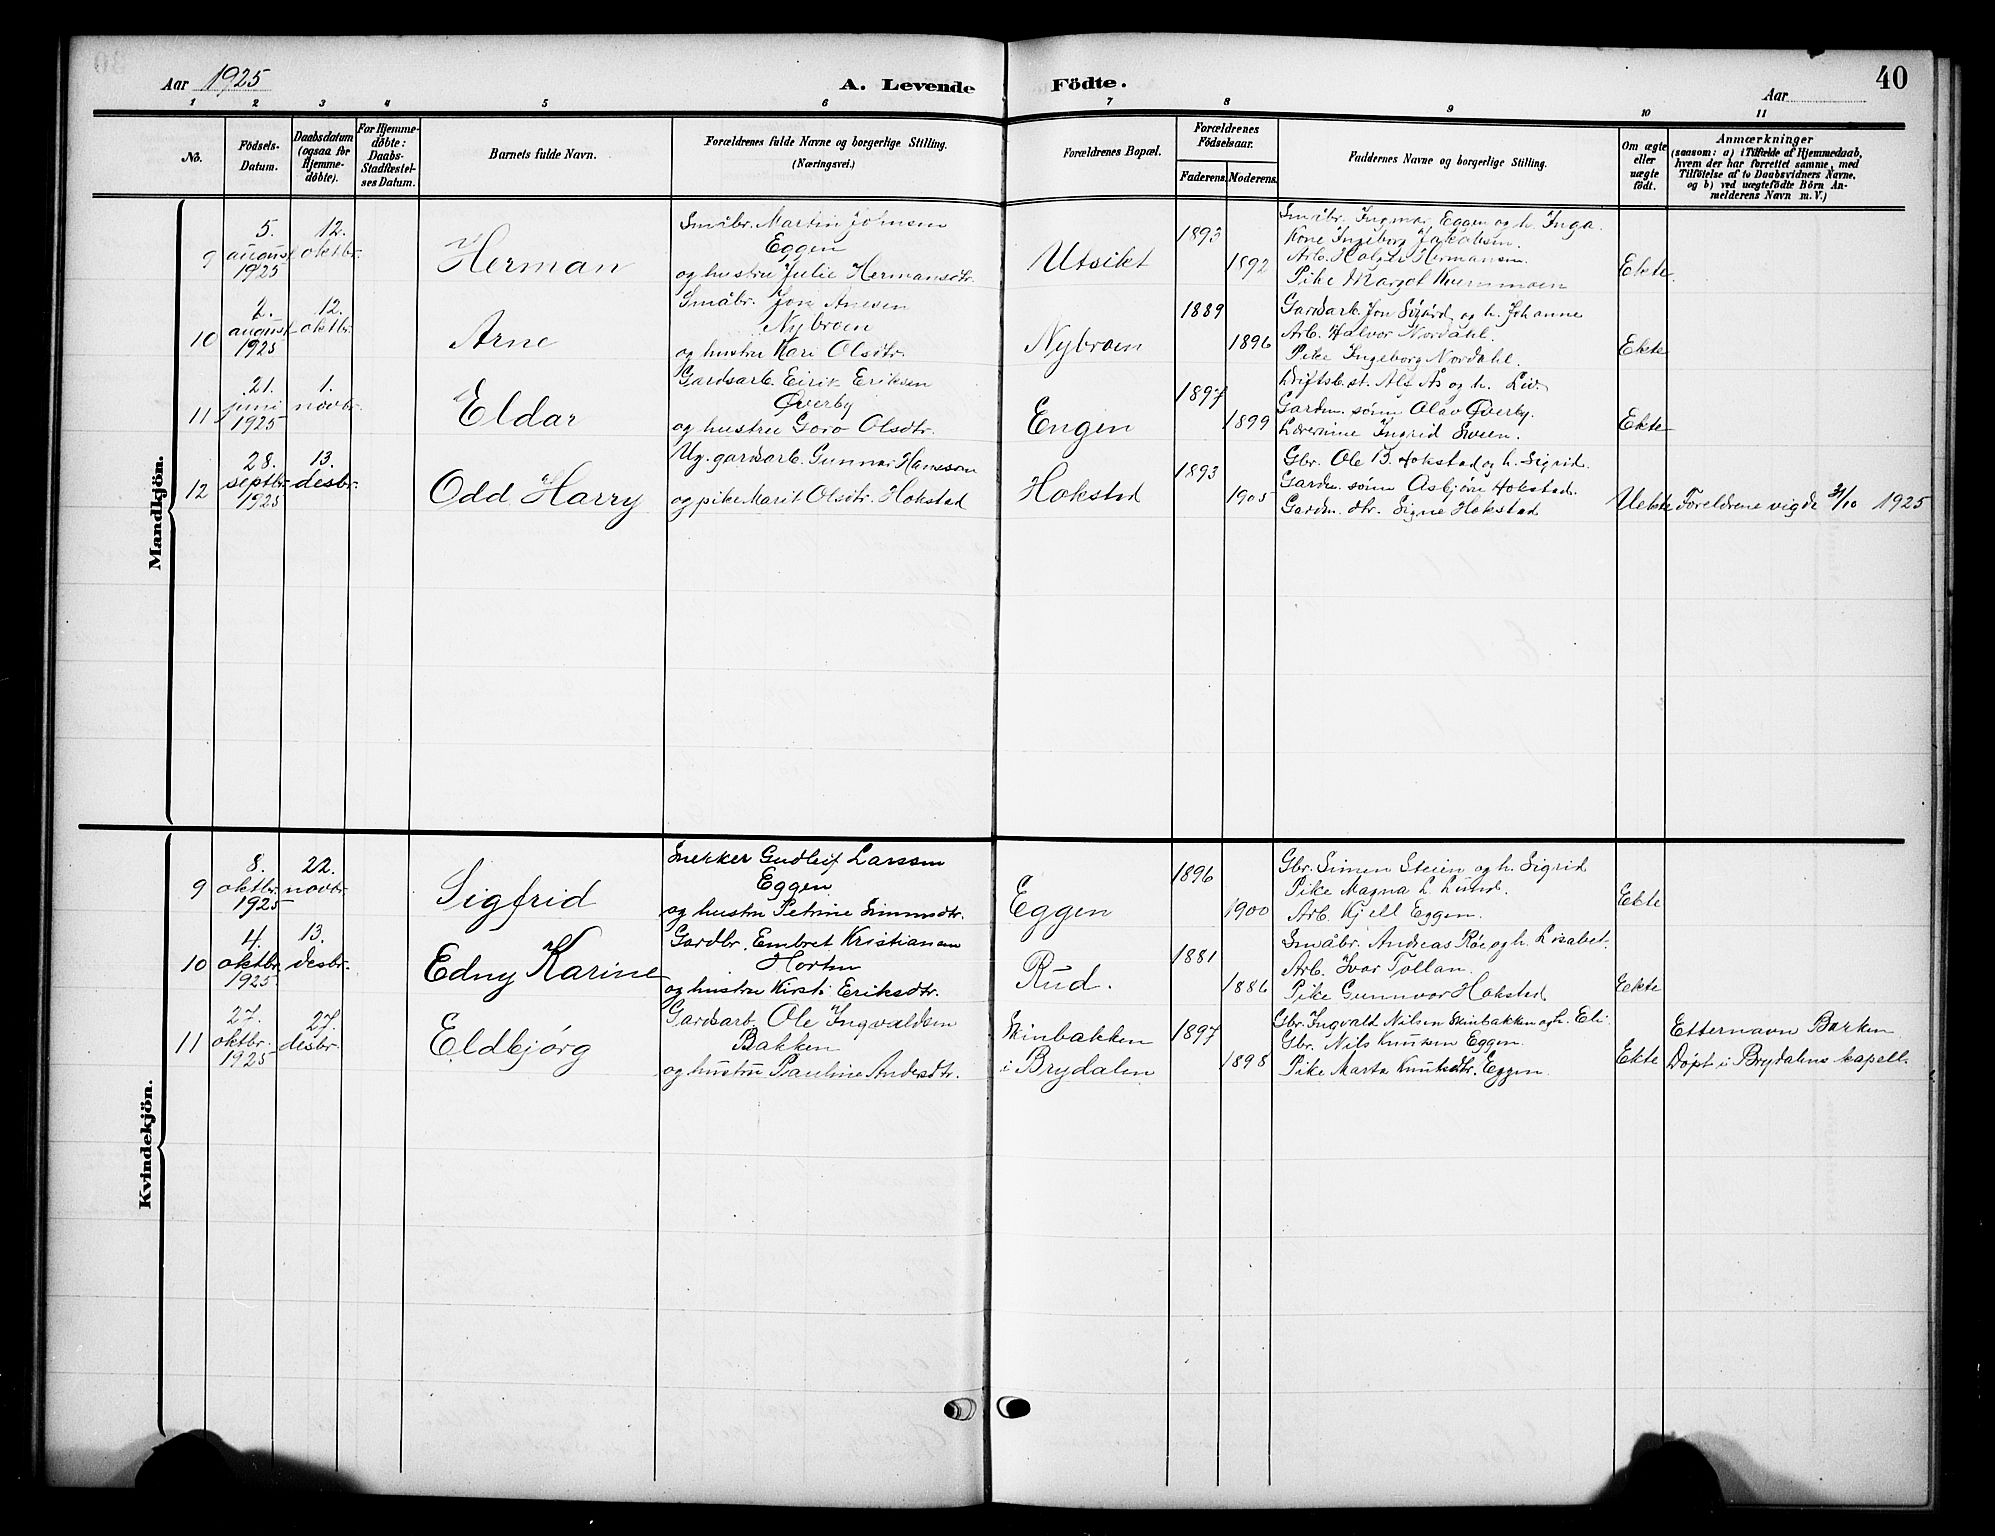 Aar 1925
A. Levende Födte.
Aar
40
1 2 3 4 5 6 7 8 9 10 11
No.
Födsels-
Datum.
Daabsdatum
(ogsaa for
Hjemme-
døbte).
For Hjemme-
døbte:
Daabs-
Stadfæstel-
ses Datum.
Barnets fulde Navn.
Forældrenes fulde Navne og borgerlige Stilling.
(Næringsvei.)
Forældrenes Bopæl.
Forældrenes
Födselsaar.
Faderens. Moderens.
Faddernes Navne og borgerlige Stilling.
Om ægte
eller
uægte
født.
Anmærkninger
(saasom: a) i Tilfælde af Hjemmedaab,
hvem der har forrettet samme, med
Tilföielse af to Daabsvidners Navne,
og b) ved uægtefödte Börn An-
melderens Navn m. V.)
Mandkjön.
9
5.
august
1925
12.
oktbr.
Herman
Småbr. Martin Johnsen
Eggen
og hustru Julie Hermansdtr.
Utsikt
1893
1892
Småbr. Ingmar Eggen og h. Inga.
Kone Ingeborg Jakobsen.
Arb. Holger Hermansen.
Pike Margot Kvernmoen
Ekte
10
2.
august
1925
12.
oktbr.
Arne
Småbr. Jon Anesen
Nybroen
og hustru Kari Olsdtr.
Nybroen
1889
1896
Gardsarb. Jon Sigård og h. Johanne
Arb. Halvor Nordahl.
Pike Ingeborg Nordahl.
Ekte
11
21.
juni
1925
1.
novbr.
Eldar
Gardsarb. Eirik Eriksen
Øverby
og hustru Goro Olsdtr.
Engen
1897
1899
Driftsbest. Als Ås og h. Liv.
Gardm. sønn Olav Øverby.
Lærerinne Ingrid Sveen.
Ekte
12
28.
septbr.
1925
13.
desbr.
Odd Harry
Ug. gardsarb. Gunnar Hansson
og pike Marit Olsdtr. Hokstad
Hokstad
1893
1905
Gbr. Ole B. Hokstad og h. Sigrid.
Gardm. sønn Asbjørn Hokstad.
Gardm. dtr. Signe Hokstad
Uekte
Foreldrene vigde 31/10 1925
Kvindekjön.
9
8.
oktbr.
1925
22.
novbr.
Sigfrid
Snekker Gudleif Larssen
Eggen
og hustru Petrine Simensdtr.
Eggen
1896
1900
Gbr. Simen Steien og h. Sigrid
Pike Magna L. Lund.
Arb. Kjell Eggen.
Ekte
10
4.
oktbr.
1925
13.
desbr.
Edny Karine
Gardbr. Embret Kristiansen
Horten
og hustru Kirsti Eriksdtr.
Rud.
1881
1886
Småbr. Andreas Røe og h. Lisabet.
Arb. Ivar Tollan.
Pike Gunnvor Hokstad
Eekte
11
27.
oktbr.
1925
27.
desbr.
Eldbjørg
Gardsarb. Ole Ingvaldsen
Bakken
og hustru Pauline Andersdtr.
Skinbakken
i Brydalen
1897
1898
Gbr. Ingvald Nilsen Skinbakken og h. Eli.
Gbr. Nils Knutsen Eggen.
Pike Marta Knutsdtr. Eggen
Ekte
Etternavn Barken
Døpt i Brydalens kapell.